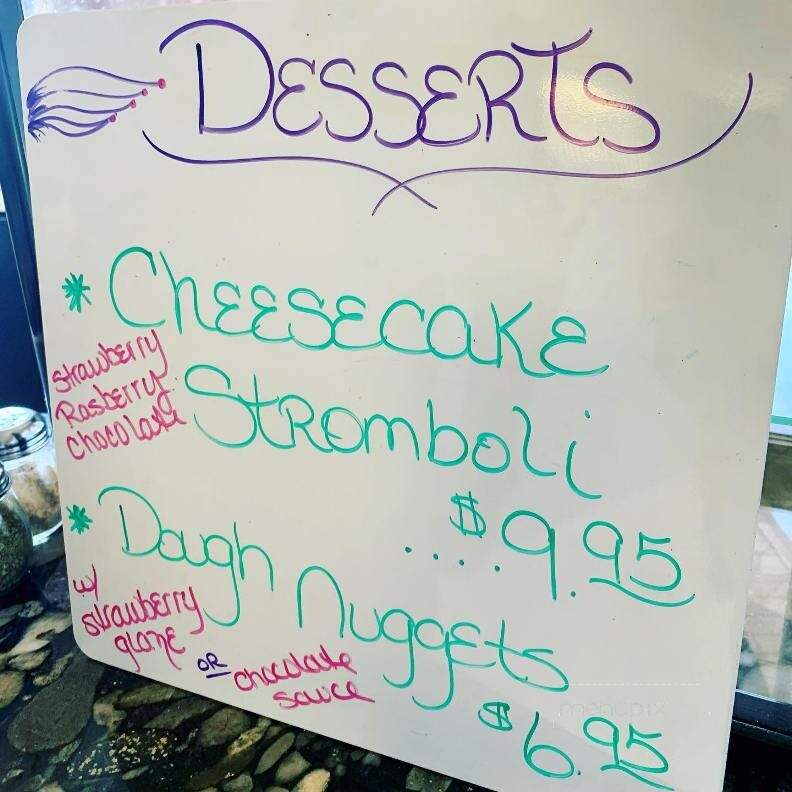 DESSERTS
* CHEESECAKE
Strawberry
Rasberry
chocolate
STROMBOLI
.... $9.95
* Dough
Nuggets
w/
strawberry
glaze
OR
chocolate
sauce
$6.95
menupix